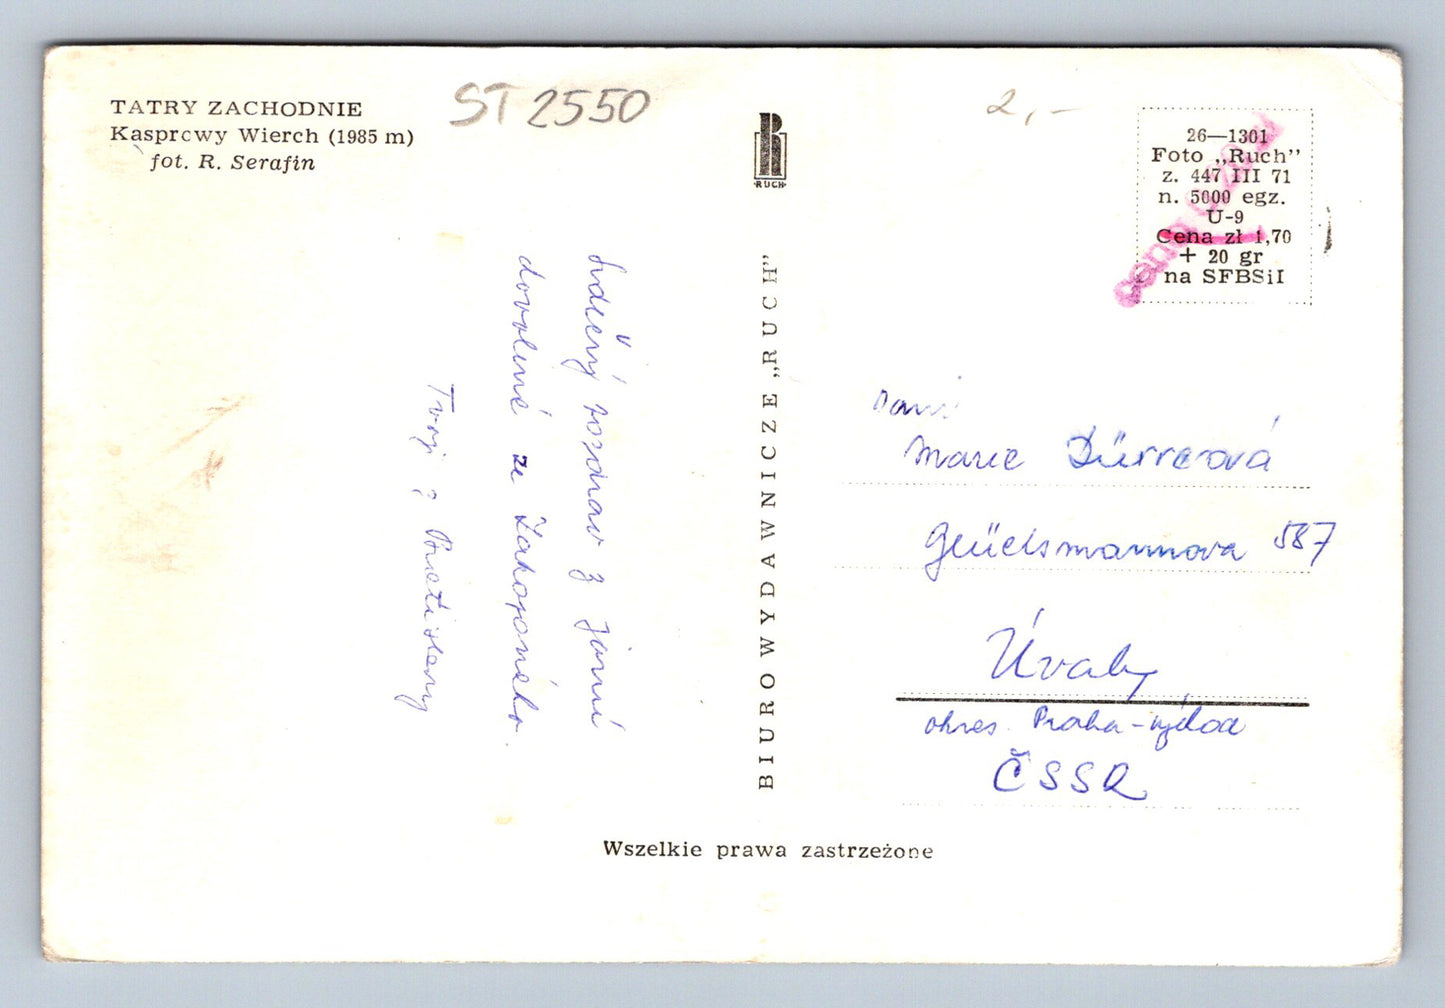 TATRY ZACHODNIE
Kasprowy Wierch (1985 m)
fot. R. Serafin
ST 2550
2,-
RUCH
26—1301
Foto „Ruch”
z. 447 III 71
n. 5000 egz.
U-9
Cena zł 1,70
+ 20 gr
na SFBSiI
Srdečný pozdrav z jarní
dovolené ze Zakopaného.
Tvoji
BIURO WYDAWNICZE „RUCH”
Paní
Marie Dürrerová
587
Úvaly
okres Praha-východ
ČSSR
Wszelkie prawa zastrzeżone